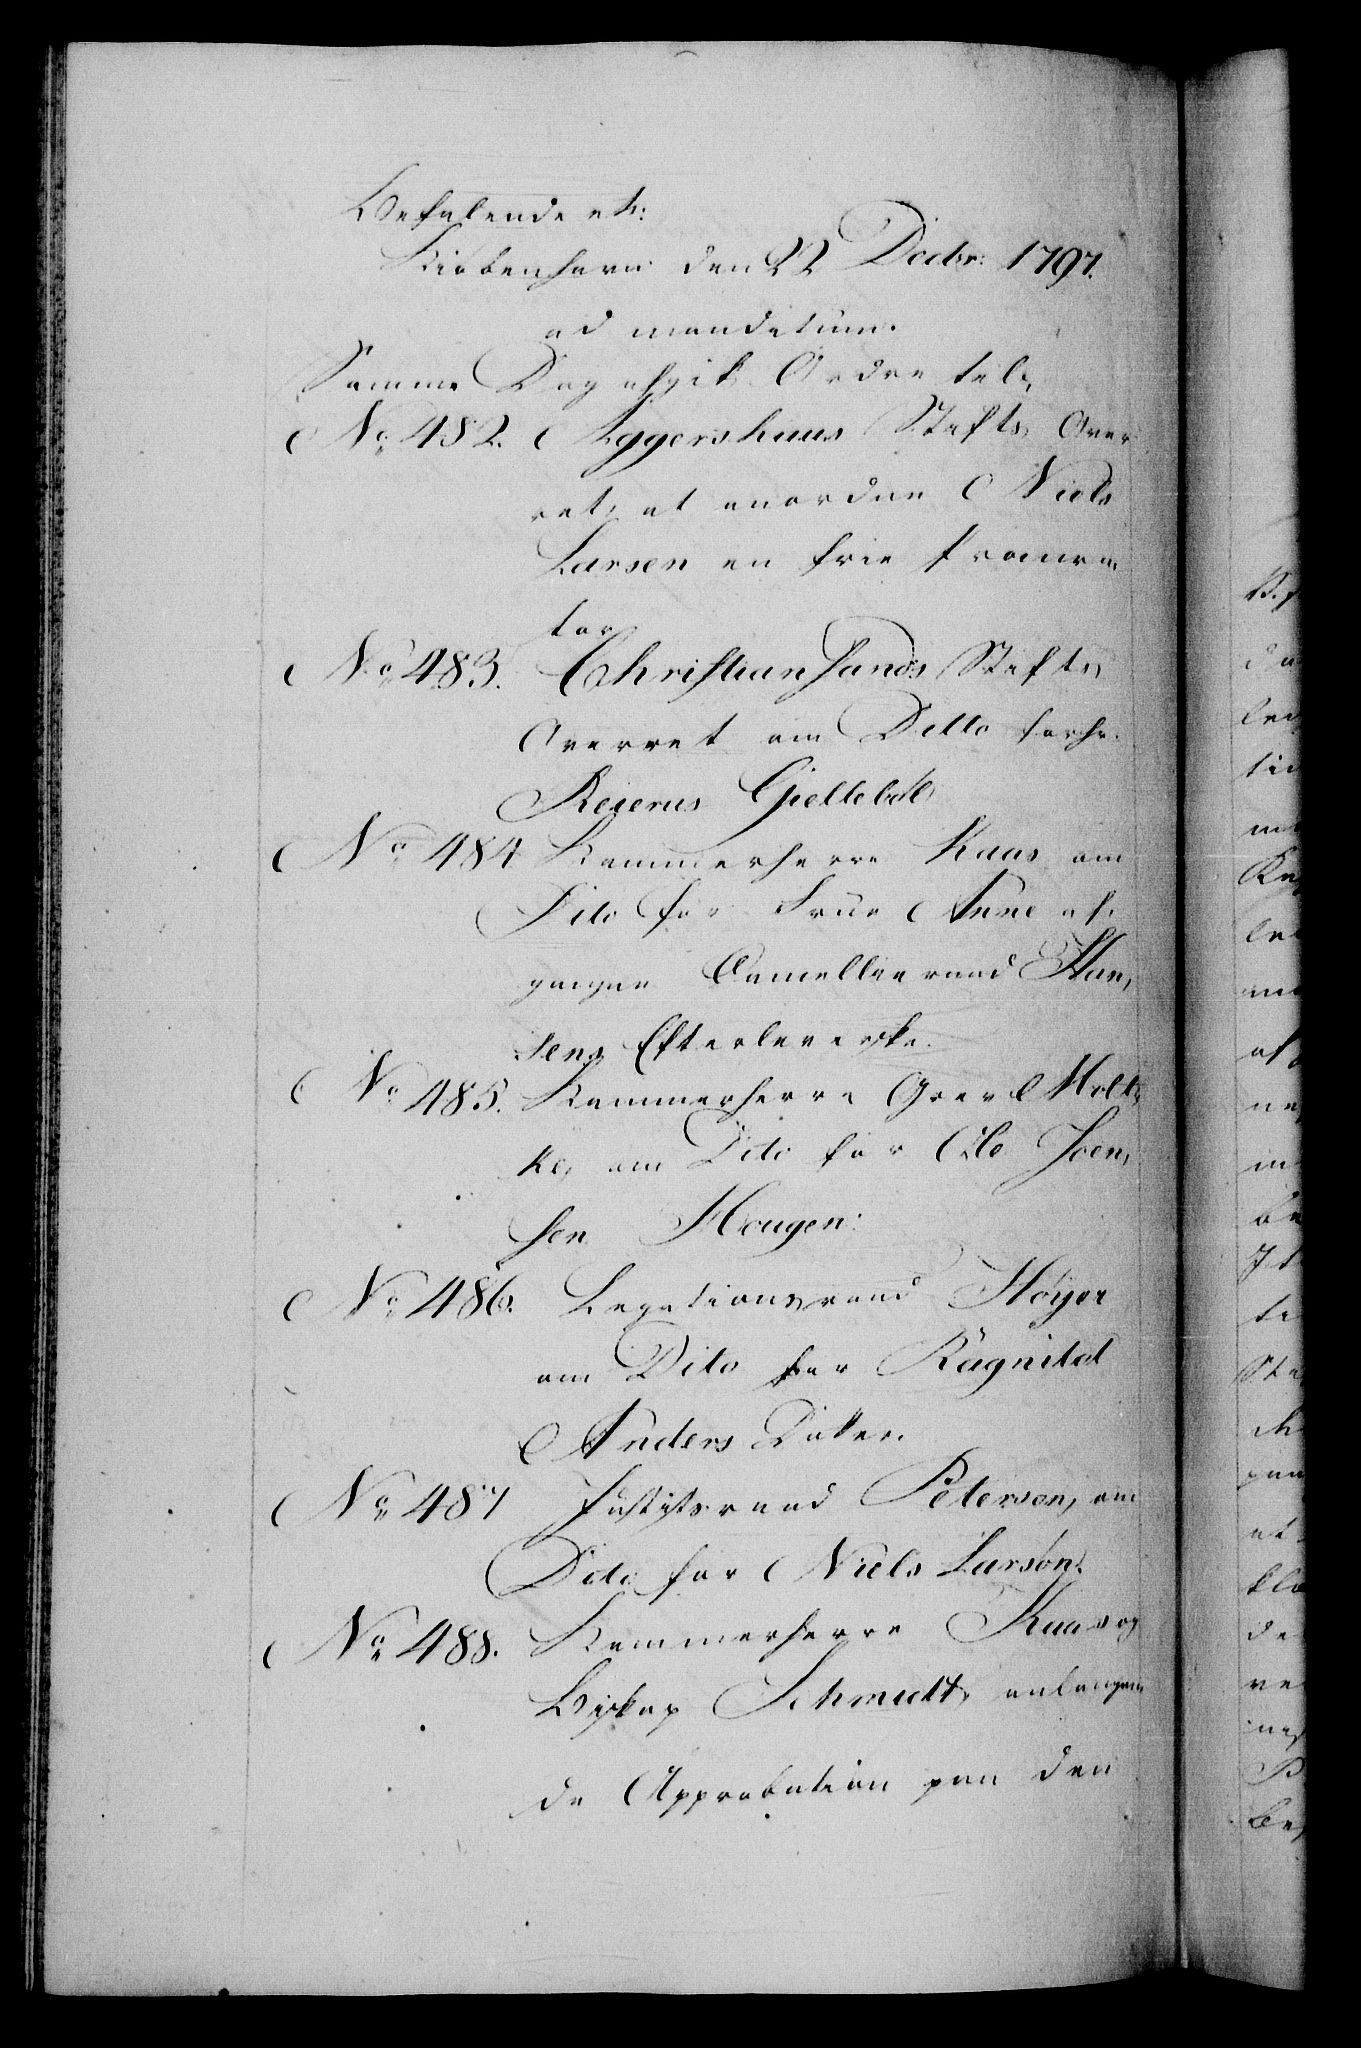 Befalende etc:
Kiöbenhavn den 22 Decbr: 1797.
ad mandatum.
Samme Dag afgik Ordre til,
No 482. Aggershuus Stifts Over
ret, at anordne Niels
Larsen en frie Procura
tor
No 483. Christiansands Stifts
Overret om Ditto for Hr.
Reierus Gjellebøl
No 484 Kammerherre Kaas om
Dito for Frue Anne af,
gangne Cancellieraad Han,
sens Efterleverske.
No 485. Kammerherre Grev Molt,
ke, om Dito for Ole Joen,
sen Hougen.
No 486. Legationsraad Höyer
om Dito for Ragnild
Anders Datter.
No 487 Justitsraad Petersen, om
Dito for Niels Larsen.
No 488. Kammerherre Kaas og
Biskop Schmidt, anlangen
de Approbation paa den